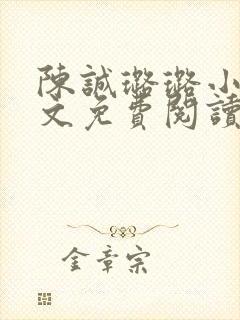 陳誠璐璐小
文免費閱讀
金章宗